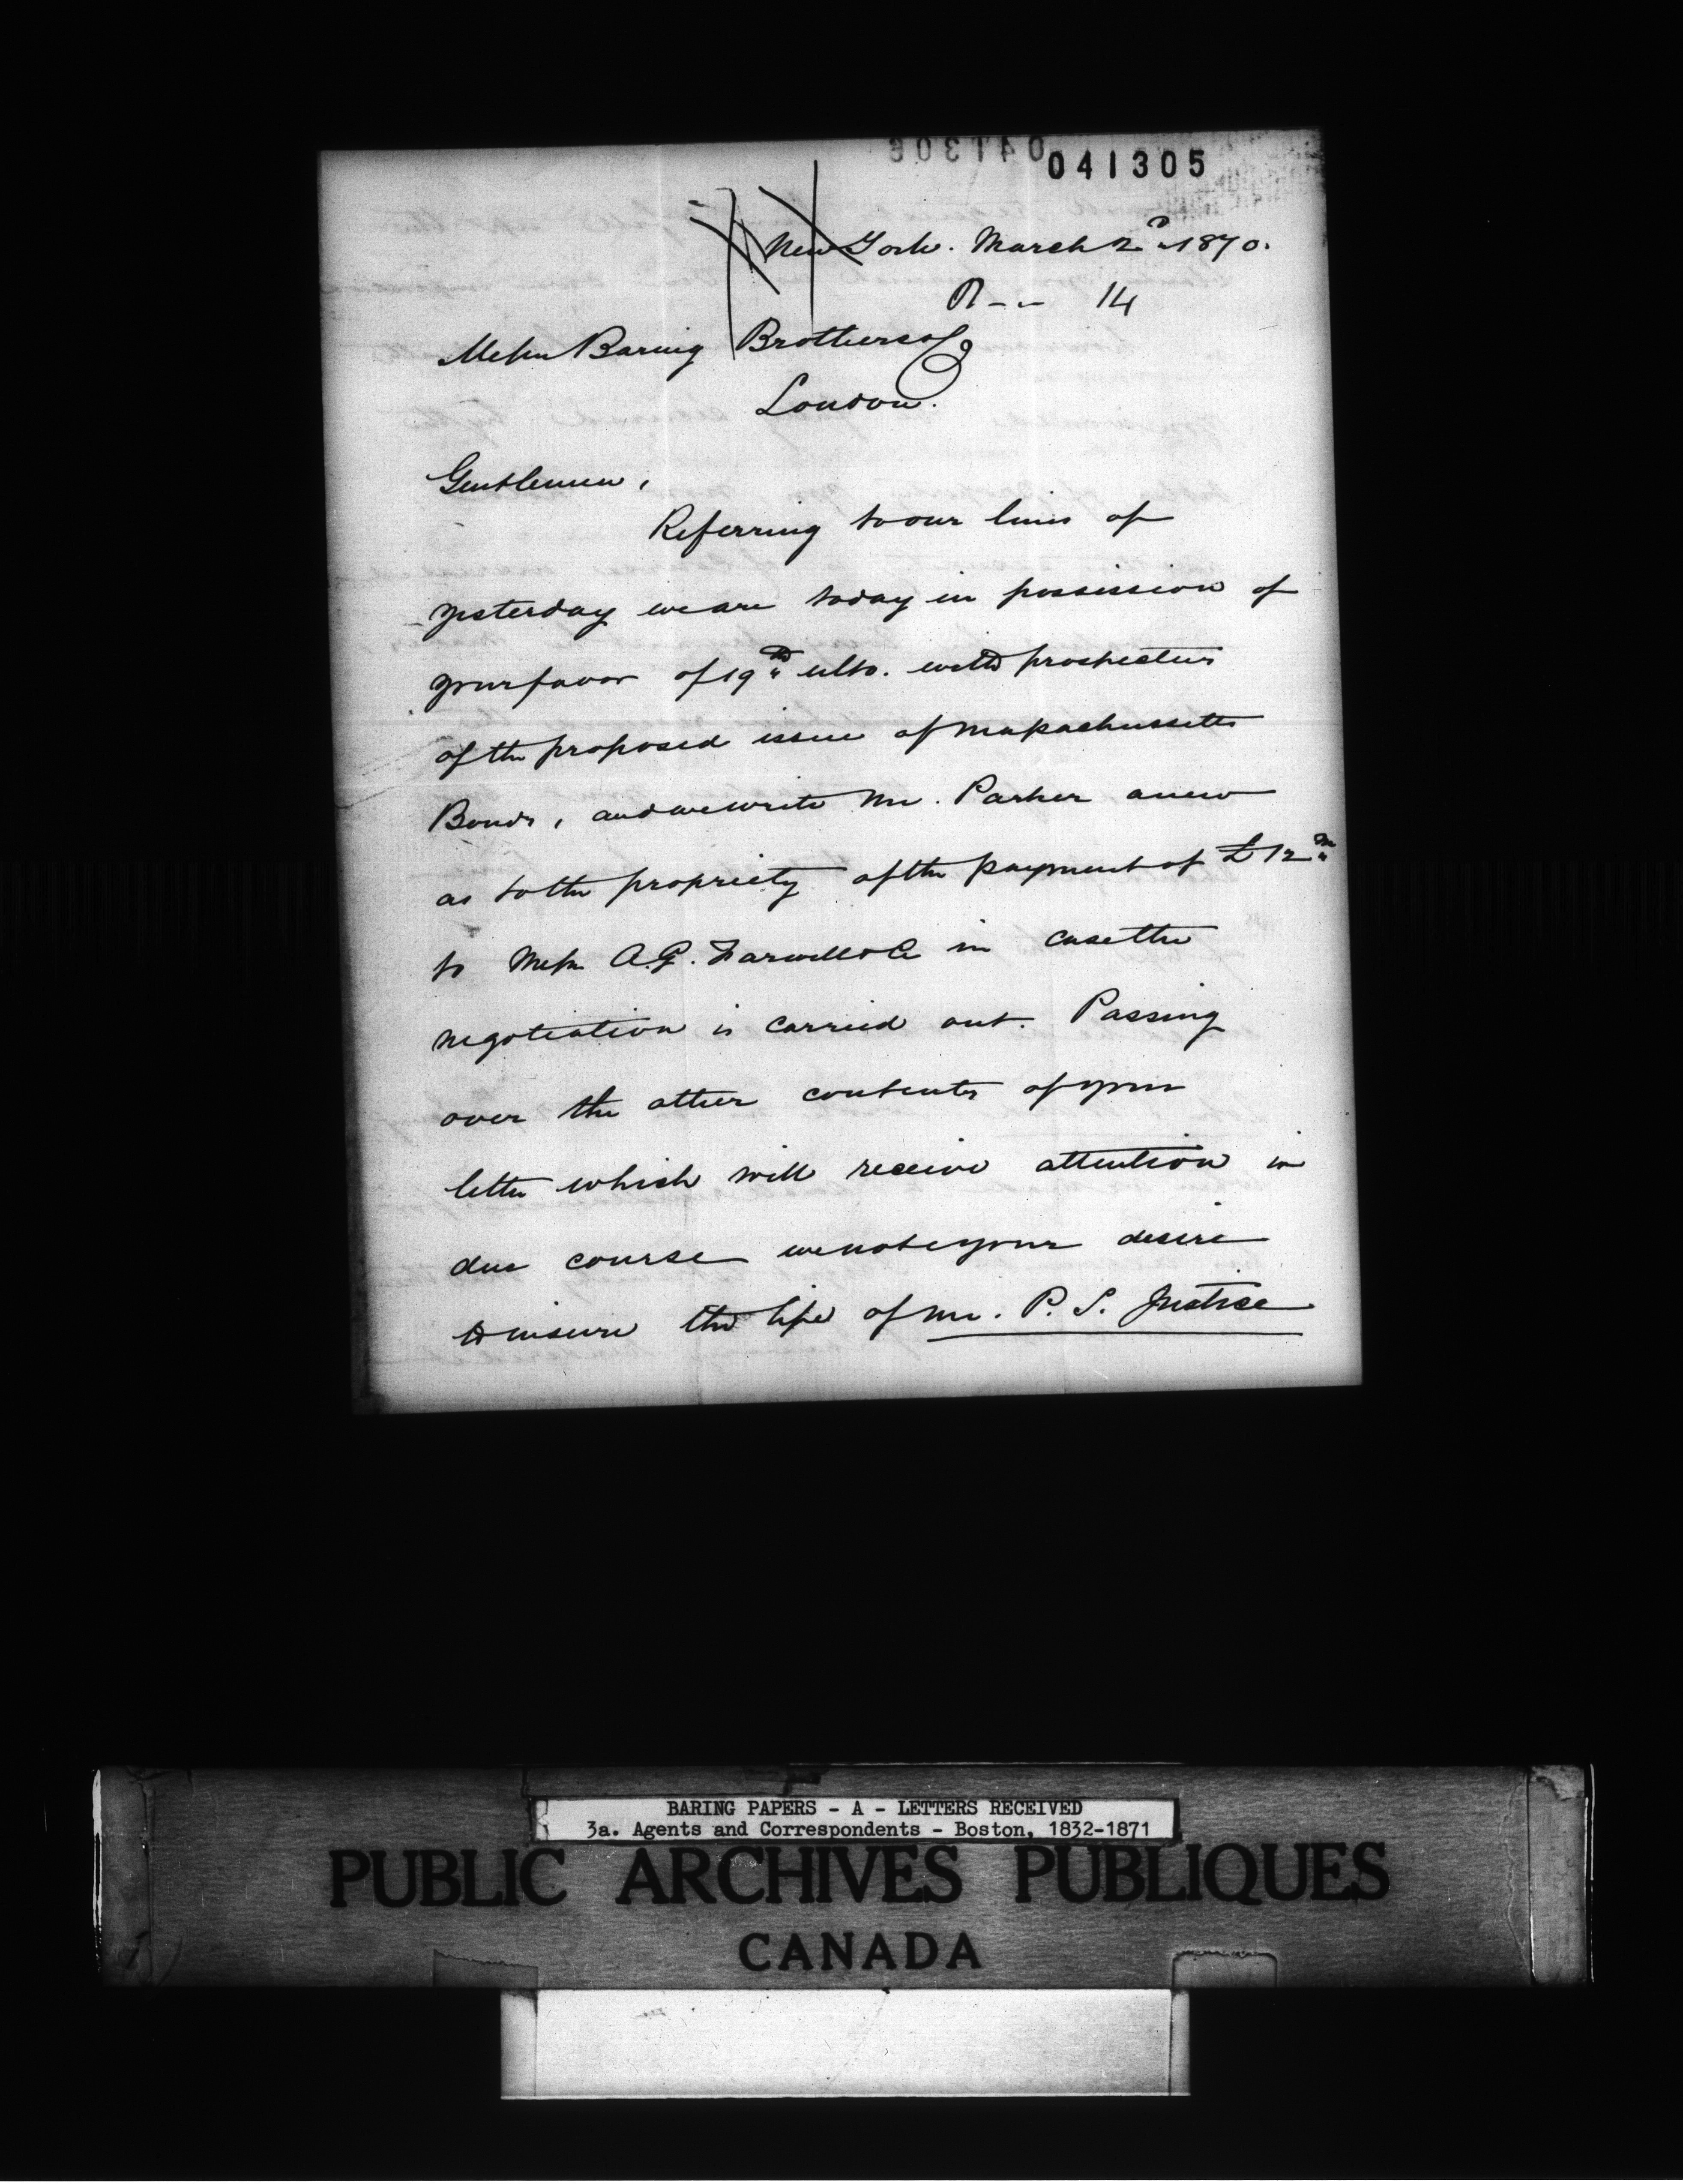 041305
New York. March 2d 1870.
R - - 14
Messrs Baring Brothers & Co
London.
Gentlemen,
Referring to our lines of
yesterday we are today in possission of
your favor of 19th ulto. with prospectus
of the proposed issue of Massachussetts
Bonds, and we write Mr. Parker anew
as to the propriety of the payment of £12m
to Messrs A. G. Farwell & Co in case the
negotiation is carried out. Passing
over the other contents of your
letter which will receive attention in
due course we note your desire
to insure the life of Mr. P. S. Justice
BARING PAPERS - A - LETTERS RECEIVED
3a. Agents and Correspondents - Boston, 1832-1871
PUBLIC ARCHIVES PUBLIQUES
CANADA